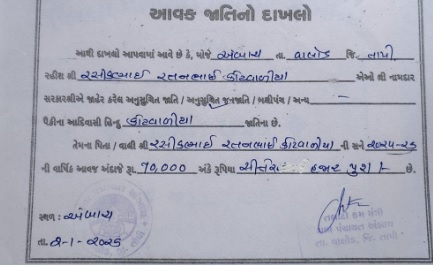 આવક જાતિનો દાખલો
આથી દાખલો આપવામાં આવે છે કે, મોજે અંબાચ તા. વાલોડ જિ. તાપી
રહીશ શ્રી રસીકભાઈ રતનભાઈ કોટવાળીયા એઓ શ્રી નામદાર
સરકારશ્રીએ જાહેર કરેલ અનુસુચિત જાતિ / અનુસુચિત જનજાતિ / બક્ષીપંચ / અન્ય —
પૈકીના આદિવાસી હિન્દુ કોટવાળીયા જાતિના છે.
તેમના પિતા / વાલી શ્રી રસીકભાઈ રતનભાઈ કોટવાળીયા ની સને ૨૦૨૫-૨૬
ની વાર્ષિક આવજ અંદાજે રૂા. 70,000 અંકે રૂપિયા સીત્તેર હજાર પુરા /- છે.
સ્થળ : અંબાચ
તા. ૨-૧-૨૦૨૬
તલાટી કમ મંત્રી
તા. વાલોડ, જિ. તાપી